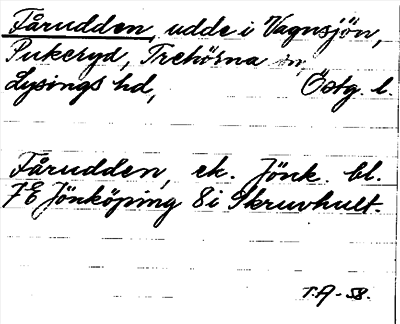 Fårudden, udde i Vagnsjön,
Pukeryd, Trehörna sn,
Lysings hd, Östg. l.
Fårudden, ek. Jönk. bl.
7E Jönköping 8i Skruvhult.
T.A -58.